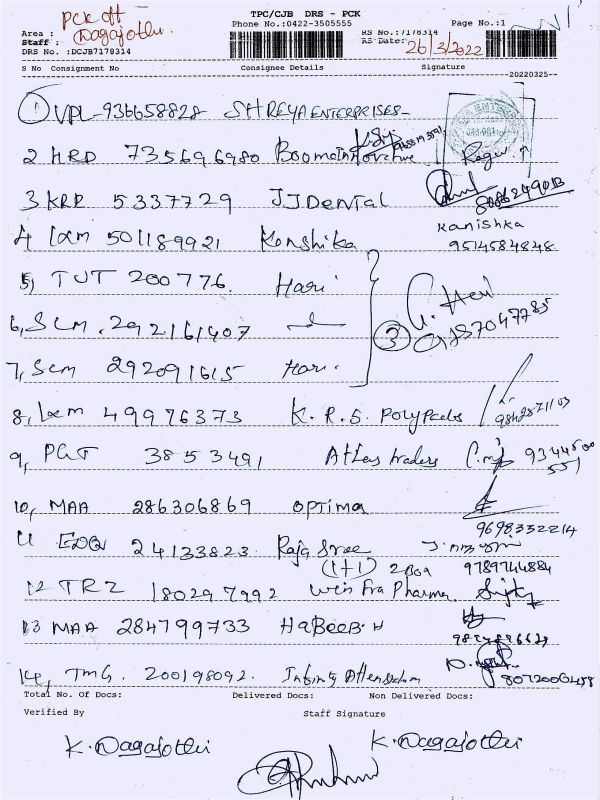 TPC/CJB DRS - PCK
Phone No.:0422-3505555 Page No.:1
PCK off
Area : Nagajothi
Staff :
RS No.:7178314
RS Date: 26/3/2022
DRS No. :DCJB7178314
S No Consignment No Consignee Details Signature
20220325--
1 VPL-936658828 SHREYA ENTERPRISES-
2 HRD 735696980 Booma Innovative Ragu
3 KRD 5337729 JJ Dental
4 Ixm 501189921 Konshika Kanishka
9514584848
5, TUT 200776. Hari
6, Scm . 292161407
3
7, Scm 292091615 Hari.
8, Ixm 49976373 K.R.S. Polypacks
9, PGT 3853491 traders 9344500
551
10, MAA 286306869 OPTIMA
9698332214
11 24133823 Raja Sree
(1+1) 9789744884
12 TRZ 180297992 Pharma
13 MAA 284799733 HaBeeB.H
14, TMG. 200198092.
Total No. Of Docs: Delivered Docs: Non Delivered Docs:
Verified By Staff Signature
K. Nagajothi K. Nagajothi